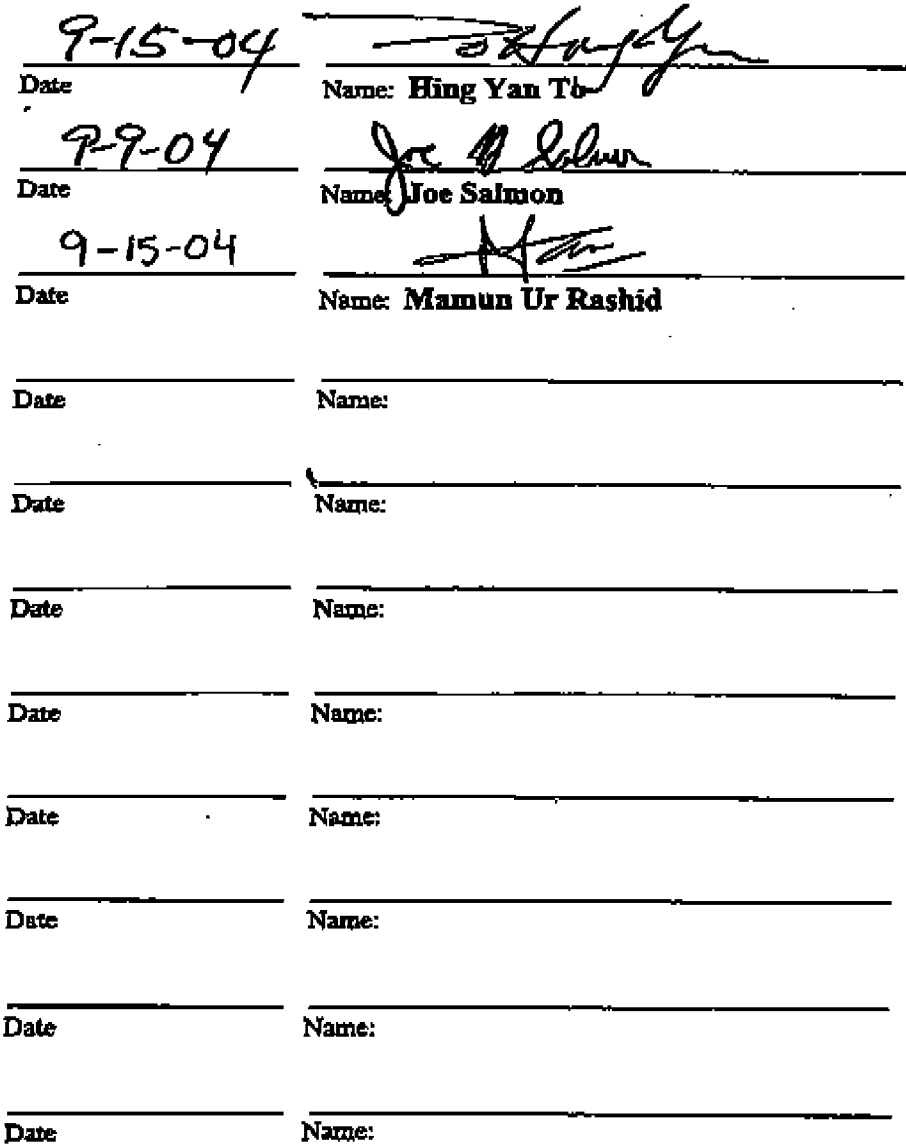 9-15-04
Date Name: Hing Yan To
9-9-04 Joe M Salmon
Date Name: Joe Salmon
9-15-04
Date Name: Mamun Ur Rashid
Date Name:
Date Name:
Date Name:
Date Name:
Date Name:
Date Name:
Date Name:
Date Name: